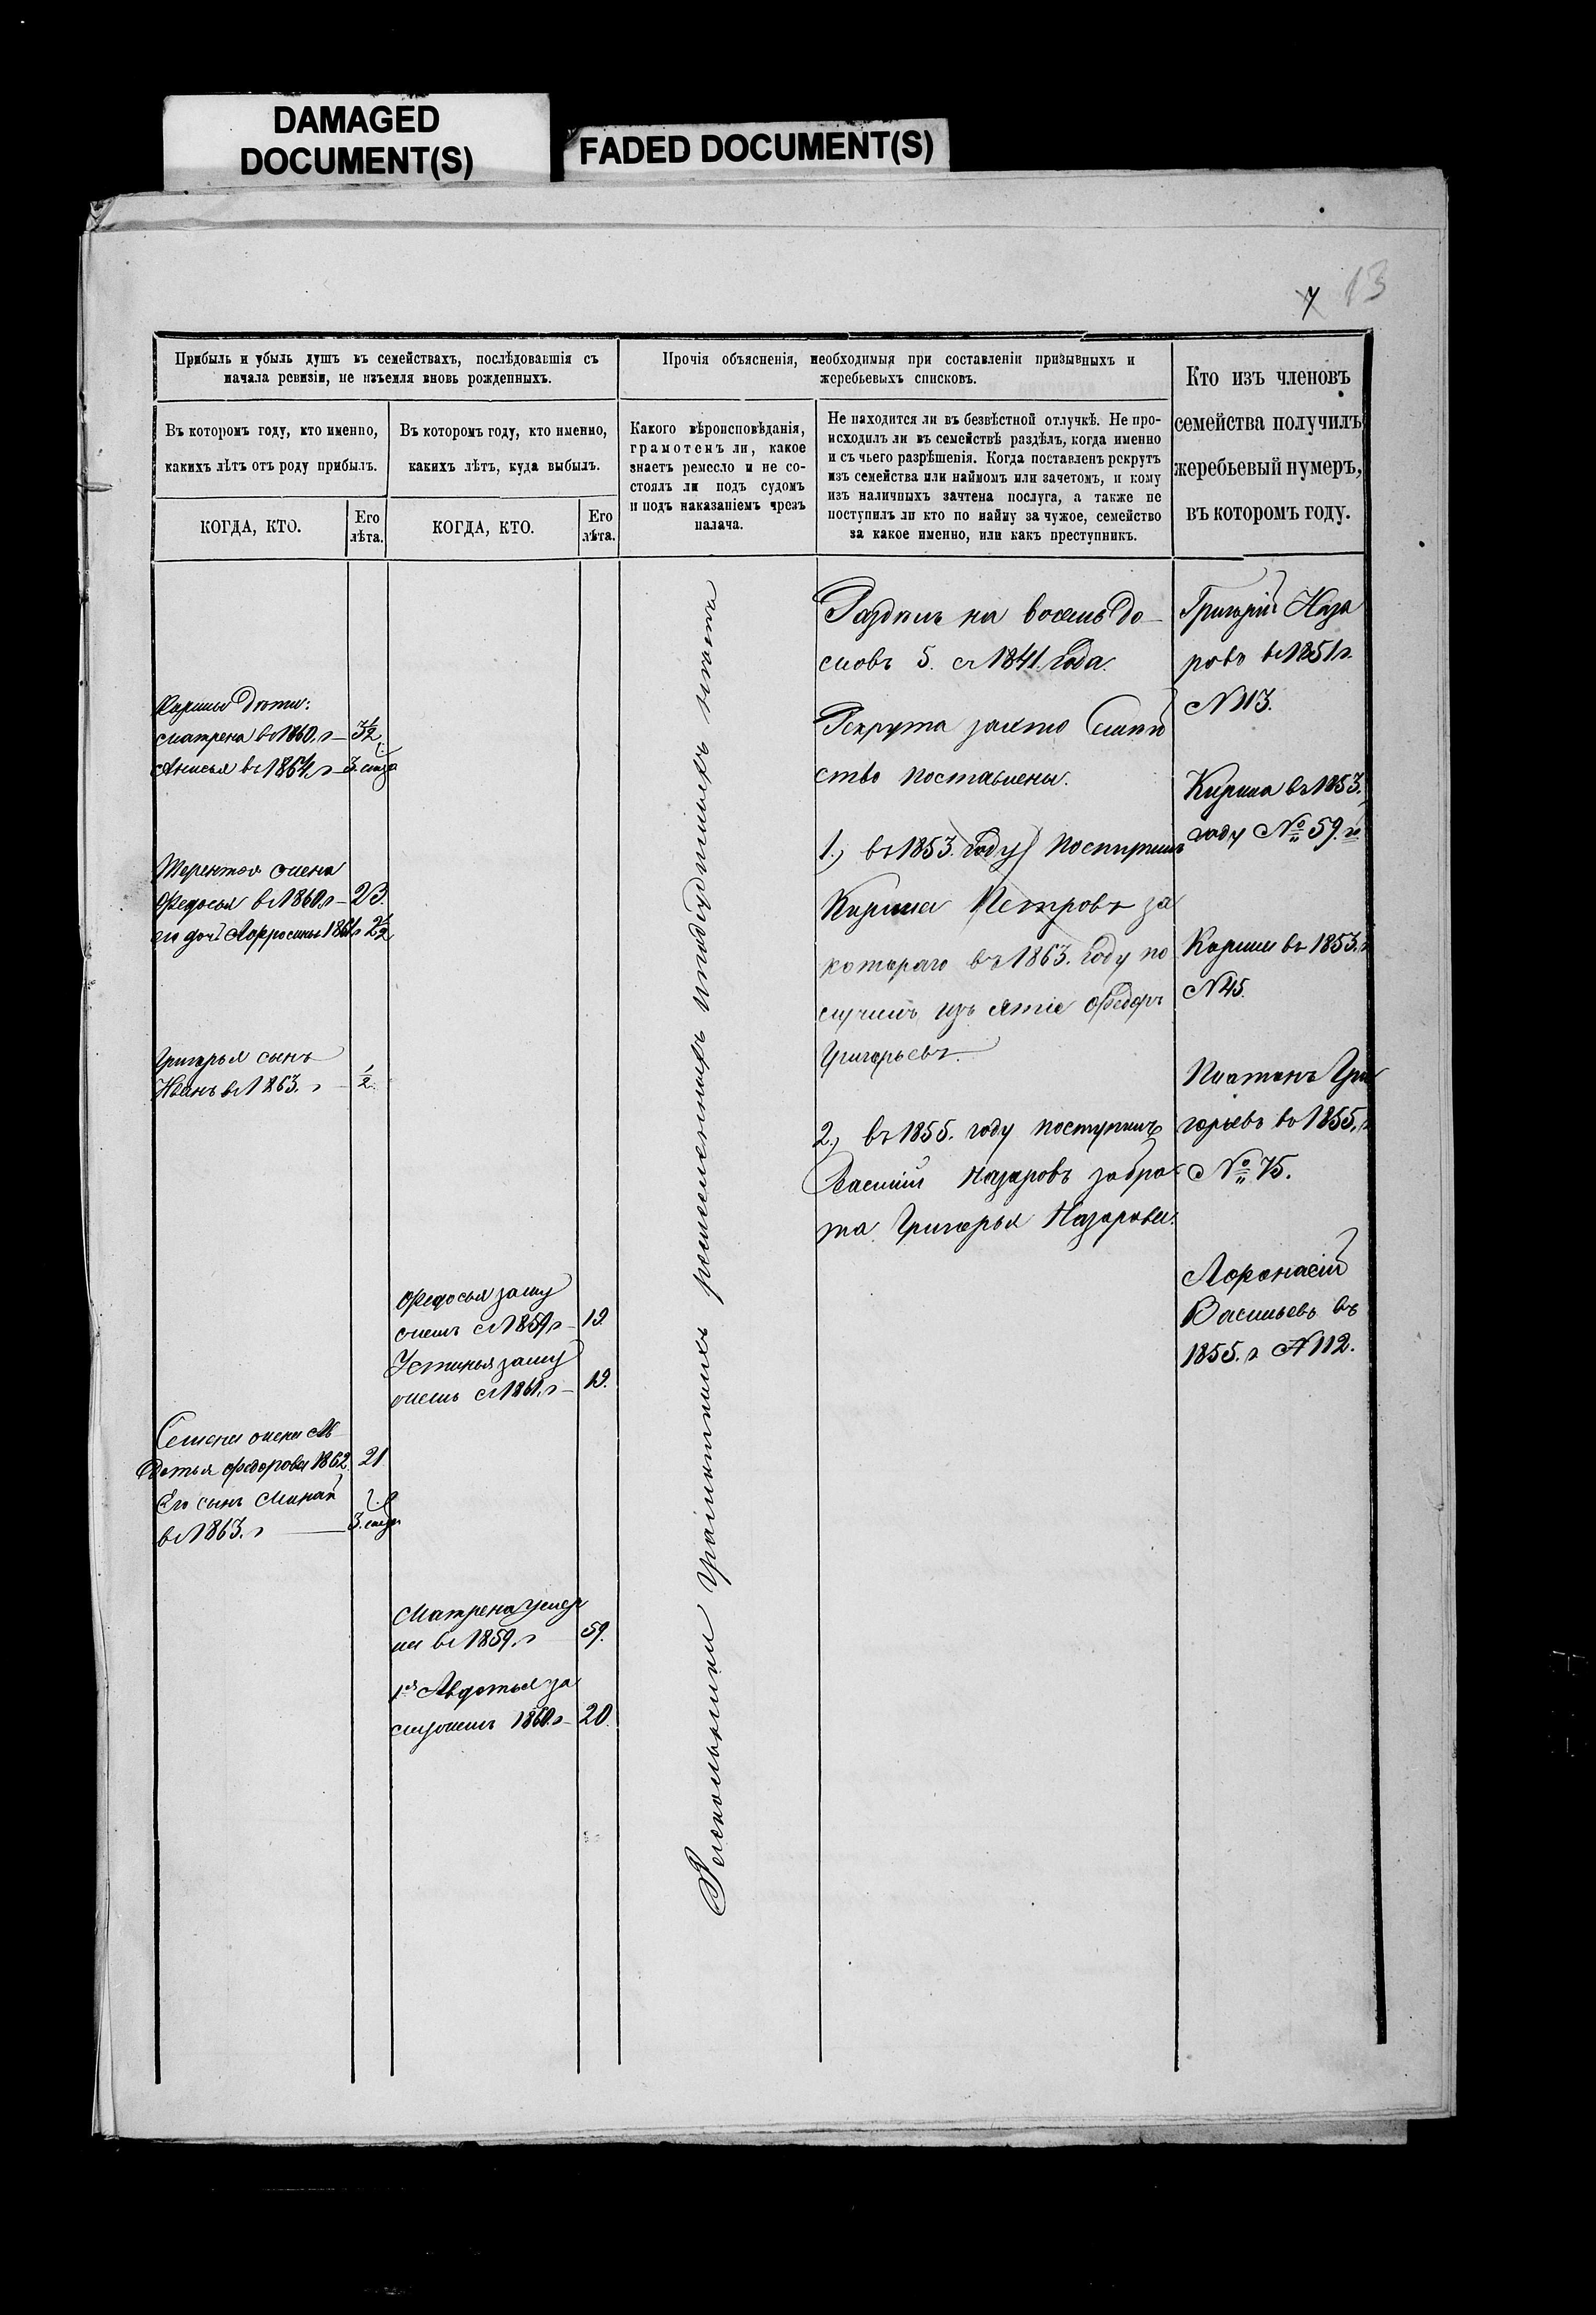 DAMAGED
DOCUMENT(S)
FADED DOCUMENT(S)
7 13
Прибыль и убыль душъ въ семействахъ, послѣдовавшія съ
начала ревизіи, не изъемля вновь рожденныхъ.
Въ которомъ году, кто именно,
какихъ лѣтъ отъ роду прибылъ.
КОГДА, КТО.
Его
лѣта.
Въ которомъ году, кто именно,
какихъ лѣтъ, куда выбылъ.
КОГДА, КТО.
Его
лѣта.
Прочія объясненія, необходимыя при составленіи призывныхъ и
жеребьевыхъ списковъ.
Какого вѣроисповѣданія,
грамотенъ ли, какое
знаетъ ремесло и не со-
стоялъ ли подъ судомъ
и подъ наказаніемъ чрезъ
палача.
Не находится ли въ безвѣстной отлучкѣ. Не про-
исходилъ ли въ семействѣ раздѣлъ, когда именно
и съ чьего разрѣшенія. Когда поставленъ рекрутъ
изъ семейства или наймомъ или зачетомъ, и кому
изъ наличныхъ зачтена послуга, а также не
поступилъ ли кто по найму за чужое, семейство
за какое именно, или какъ преступникъ.
Кто изъ членовъ
семейства получилъ
жеребьевый нумеръ,
въ которомъ году.
дѣти:
Матрена въ 1860. г 3½
Анисья въ 1864. г 3.
Терентья жена
Федосья въ 1860. г 23.
его дочь 1861 г 2½
Григорья сынъ
Иванъ въ 1863. г ½
Семена жена Ав
дотья Федорова 1862. 21.
Его сынъ Минай
въ 1863. г 3.
Федосья заму
жемъ съ 1859. г 19.
Устинья заму
жемъ съ 1861. г 19.
Матрена умер
ла въ 1859. г 59.
1я Авдотья за
мужемъ 1860. г 20.
Раздѣлъ на восемь до
мовъ 5. съ 1841. Года.
Рекрута
ство поставлены.
1.) въ 1853. Году поступилъ
Кирила Петровъ за
котораго въ 1863. Году по
Федоръ
Григорьевъ.
2.) въ 1855. году поступилъ
Василій Назаровъ за бра
та Григорья Назарова.
Григорій Наза
ровъ въ 1851 г.
N 113.
Кирила въ 1853.
году № 59. й
въ 1853. г
N 45.
Платонъ Гри
горьевъ въ 1855. г
№ 75.
Афонасій
Васильевъ въ
1855. г N 112.